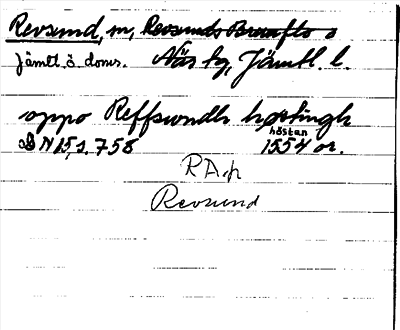 Revsund, m, Revsunds Brunflo o
Jämtl. ö. doms. Näs tg, Jämtl. l.
oppo Reffswndh høstingh
höstan
DN 15, s. 758 1554 or.
RA.p
Revsund